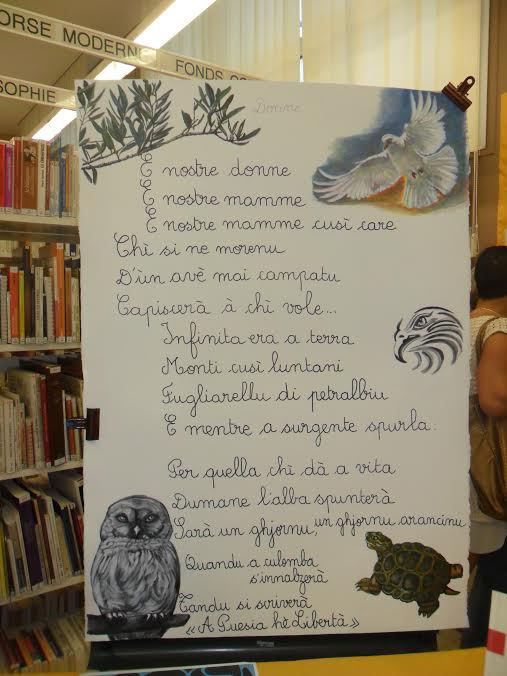 ORSE MODERNE
FONDS CO
SOPHIE
Donne
E nostre donne
E nostre mamme
E nostre mamme cusì care
Chì si ne morenu
D'ùn avè mai campatu
Capiscerà à chì vole...
Infinita era a terra
Monti cusì luntani
Fugliarellu di petralbiu
E mentre a surgente spurla:
Per quella chì dà a vita
Dumane l'alba spunterà
Sarà un ghjornu, un ghjornu arancinu
Quandu a culomba
s'innalzerà
Tandu si scriverà
« A Puesia hè Libertà »